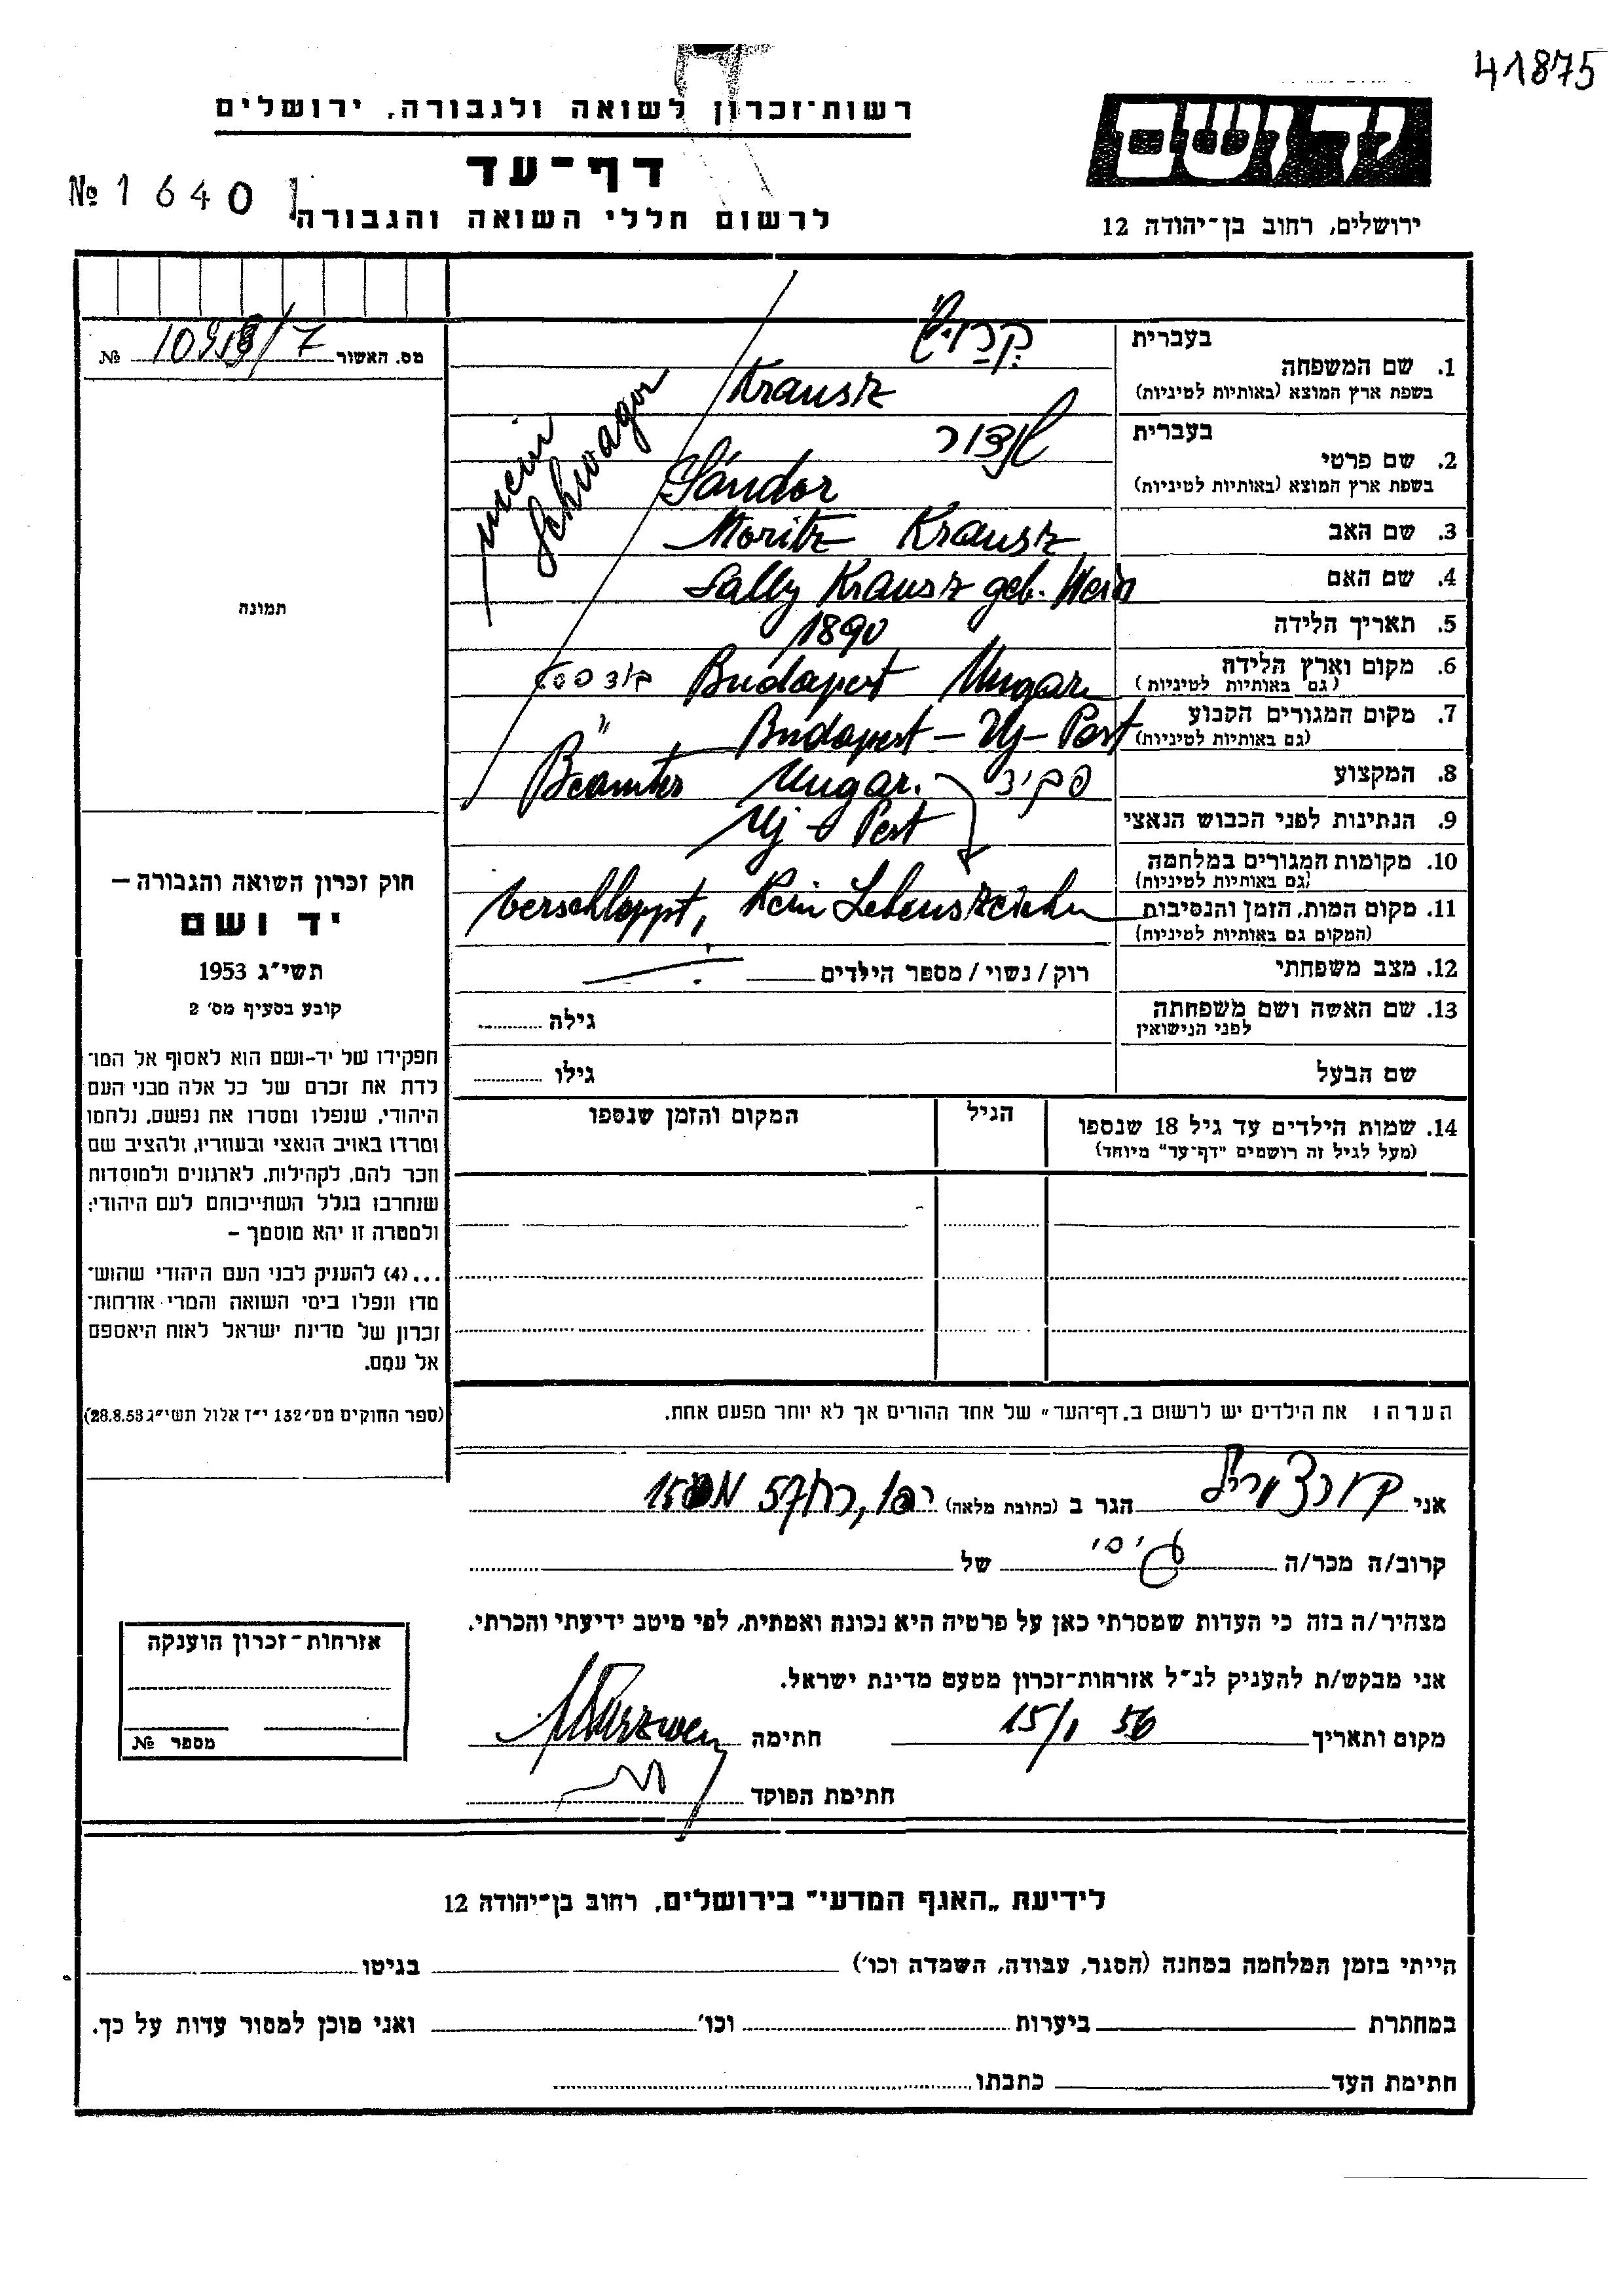 41875
רשות־זכרון לשואה ולגבורה, ירושלים
יד ושם
דף־עד
№ 1640
לרשום חללי השואה והגבורה
ירושלים, רחוב בן־יהודה 12
מס. האשור № /7
תמונה
mein Schwager
בעברית
1. שם המשפחה
בשפת ארץ המוצא (באותיות לטיניות) Krausz
בעברית שנדור
2. שם פרטי
בשפת ארץ המוצא (באותיות לטיניות) Sándor
3. שם האב Moritz Krausz
4. שם האם Sally Krausz geb. Wein
5. תאריך הלידה 1890
6. מקום וארץ הלידה Budapest Ungar.
(גם באותיות לטיניות)
7. מקום המגורים הקבוע Budapest – Uj – Pest "
(גם באותיות לטיניות)
8. המקצוע פקיד Beamter
9. הנתינות לפני הכבוש הנאצי Ungar.
10. מקומות המגורים במלחמה Uj – Pest
(גם באותיות לטיניות)
11. מקום המות, הזמן והנסיבות verschleppt, Kein Lebenszeichen
(המקום גם באותיות לטיניות)
12. מצב משפחתי רוק / נשוי / מספר הילדים
13. שם האשה ושם משפחתה גילה
לפני הנישואין
שם הבעל גילו
14. שמות הילדים עד גיל 18 שנספו הגיל המקום והזמן שנספו
(מעל לגיל זה רושמים "דף־עד" מיוחד)
חוק זכרון השואה והגבורה —
יד ושם
תשי"ג 1953
קובע בסעיף מס' 2
תפקידו של יד-ושם הוא לאסוף אל המו־
לדת את זכרם של כל אלה מבני העם
היהודי, שנפלו ומסרו את נפשם, נלחמו
ומרדו באויב הנאצי ובעוזריו, ולהציב שם
וזכר להם, לקהילות, לארגונים ולמוסדות
שנחרבו בגלל השתייכותם לעם היהודי;
ולמטרה זו יהא מוסמך –
...(4) להעניק לבני העם היהודי שהוש־
מדו ונפלו בימי השואה והמרי אזרחות־
זכרון של מדינת ישראל לאות היאספם
אל עמם.
(ספר החוקים מס' 132 י"ז אלול תשי"ג 28.8.53)
הערה: את הילדים יש לרשום ב„דף־העד" של אחד ההורים אך לא יותר מפעם אחת.
אני הגר ב (כתובת מלאה) יפו, רח 57 מס 15
קרוב/ה מכר/ה גיסי של
מצהיר/ה בזה כי העדות שמסרתי כאן על פרטיה היא נכונה ואמתית, לפי מיטב ידיעתי והכרתי.
אני מבקש/ת להעניק לנ"ל אזרחות־זכרון מטעם מדינת ישראל.
מקום ותאריך 15/1 56 חתימה
חתימת הפוקד
אזרחות־זכרון הוענקה
מספר №
לידיעת „האגף המדעי" בירושלים, רחוב בן־יהודה 12
הייתי בזמן המלחמה במחנה (הסגר, עבודה, השמדה וכו') בגיטו
במחתרת ביערות וכו' ואני מוכן למסור עדות על כך.
חתימת העד כתבתו